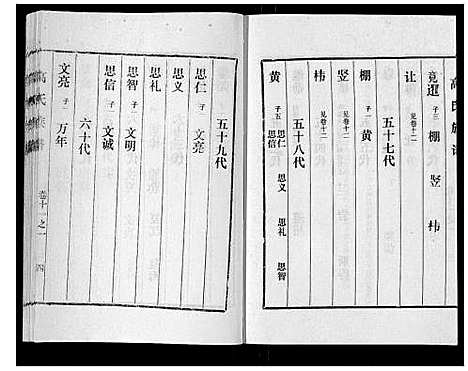 高氏族譜
竟選 子三 棚 竖 柿
让 见卷十二
五十七代
棚 子一 黄
竖 见卷十二
柿 见卷十二
五十八代
黄 子五 思仁 思义 思礼 思智 思信
五十九代
思仁 子一 文亮
思义
思礼
思智 子一 文明
思信 子一 文诚
六十代
文亮 子一 万年
高氏族譜 卷十一之一 四